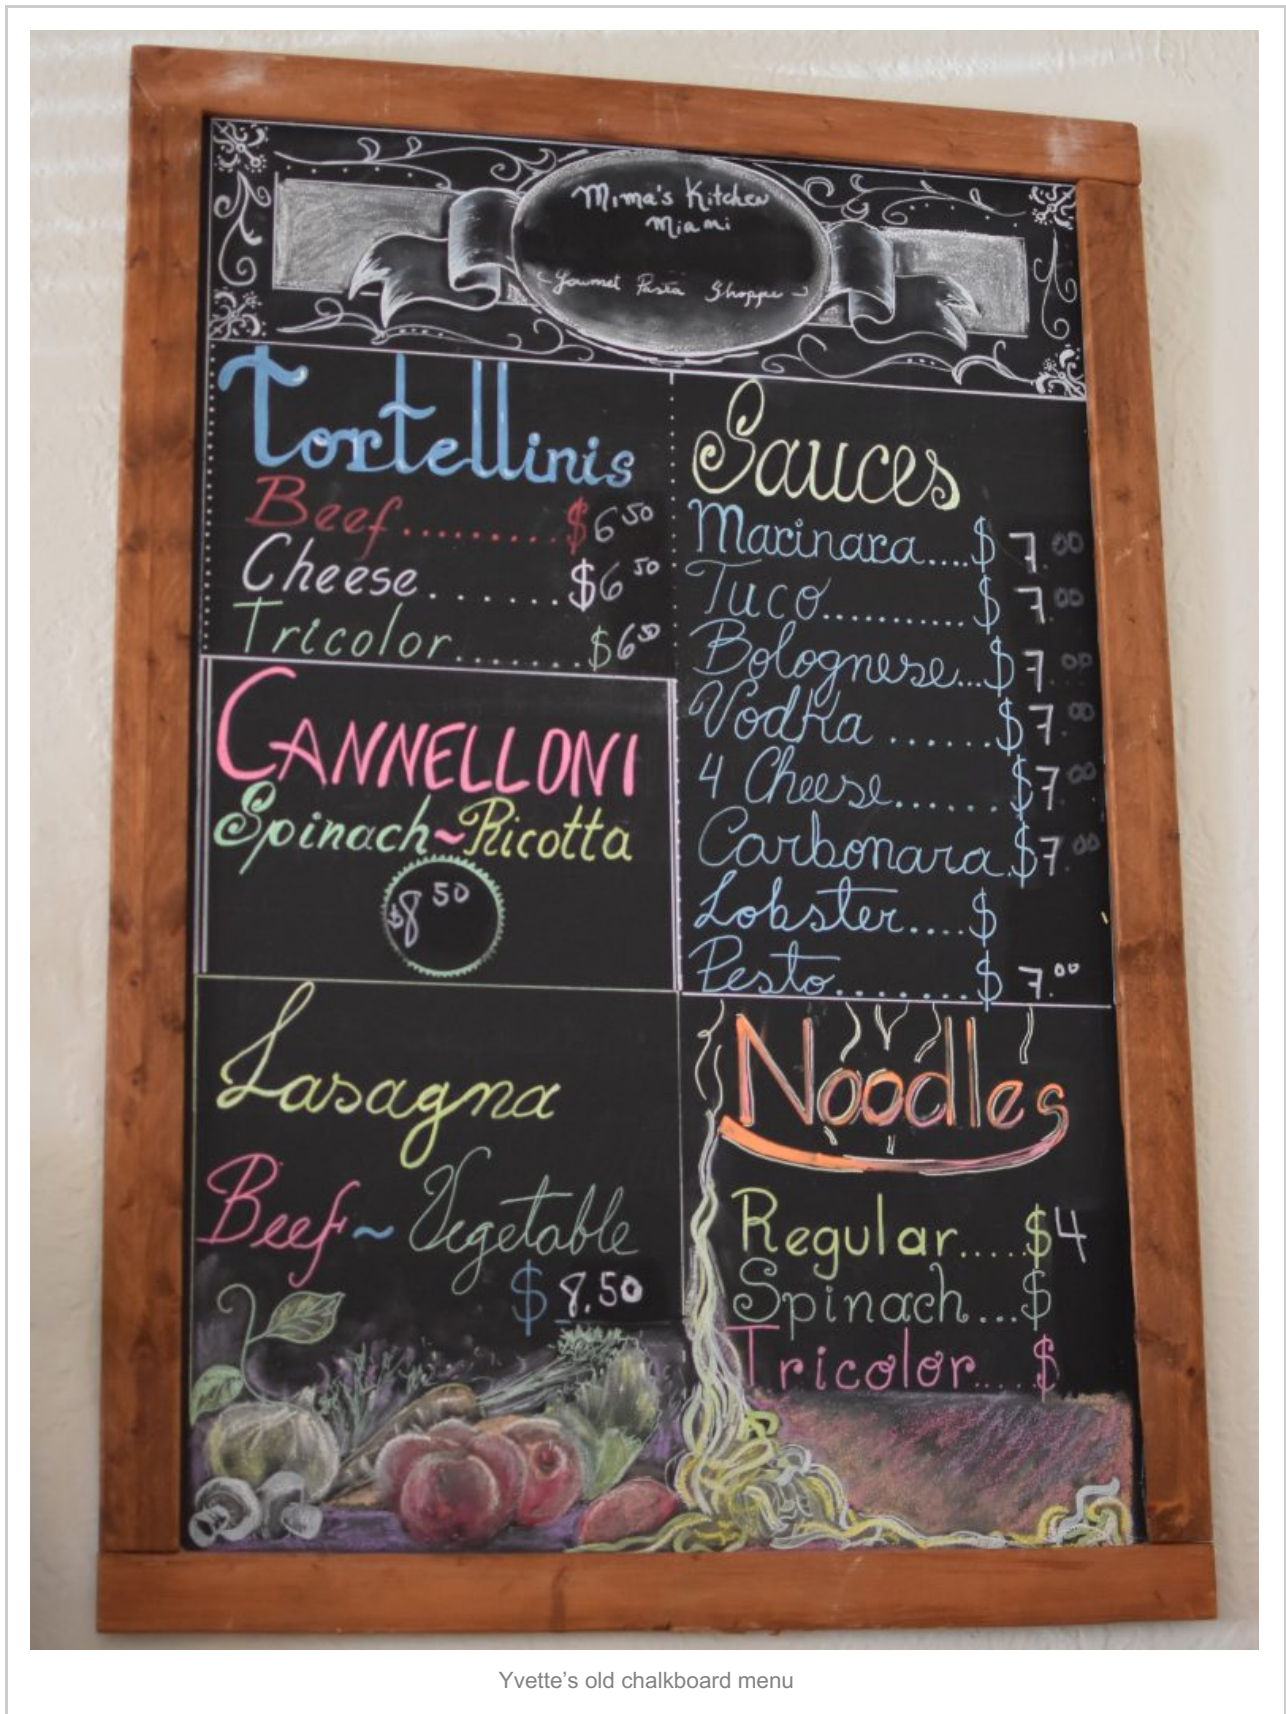 Mima's Kitchen
Miami
Gourmet Pasta Shoppe
Tortellinis
Beef.........$6 50
Cheese.......$6 50
Tricolor.......$6 50
CANNELLONI
Spinach~Ricotta
$8 50
Lasagna
Beef~Vegetable
$ 8.50
Sauces
Marinara....$ 7.00
Tuco...........$ 7.00
Bolognese...$ 7.00
Vodka ......$ 7.00
4 Cheese......$7.00
Carbonara.$7.00
Lobster....$
Pesto.......$ 7.00
Noodles
Regular.....$4
Spinach...$
Tricolor....$
Yvette’s old chalkboard menu